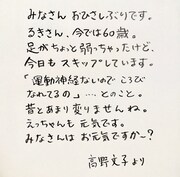 みなさん おひさしぶりです。
るきさん、今では60歳。
足がちょっと弱っちゃったけど、
今日もスキップしています。
「運動神経ないので ころび
なれてるの」……とのこと。
昔とあまり変りませんね。
えっちゃんも元気です。
みなさんはお元気ですかー？
高野文子より